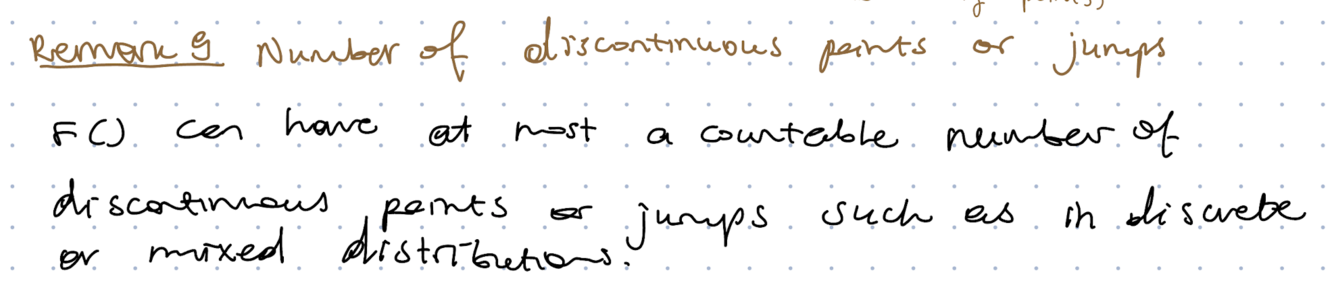 points)
Remark 9 Number of discontinuous points or jumps
F() can have at most a countable number of
discontinuous points or jumps such as in discrete
or mixed distributions.